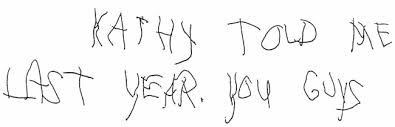 KATHY TOLD ME
LAST YEAR. YOU GUYS